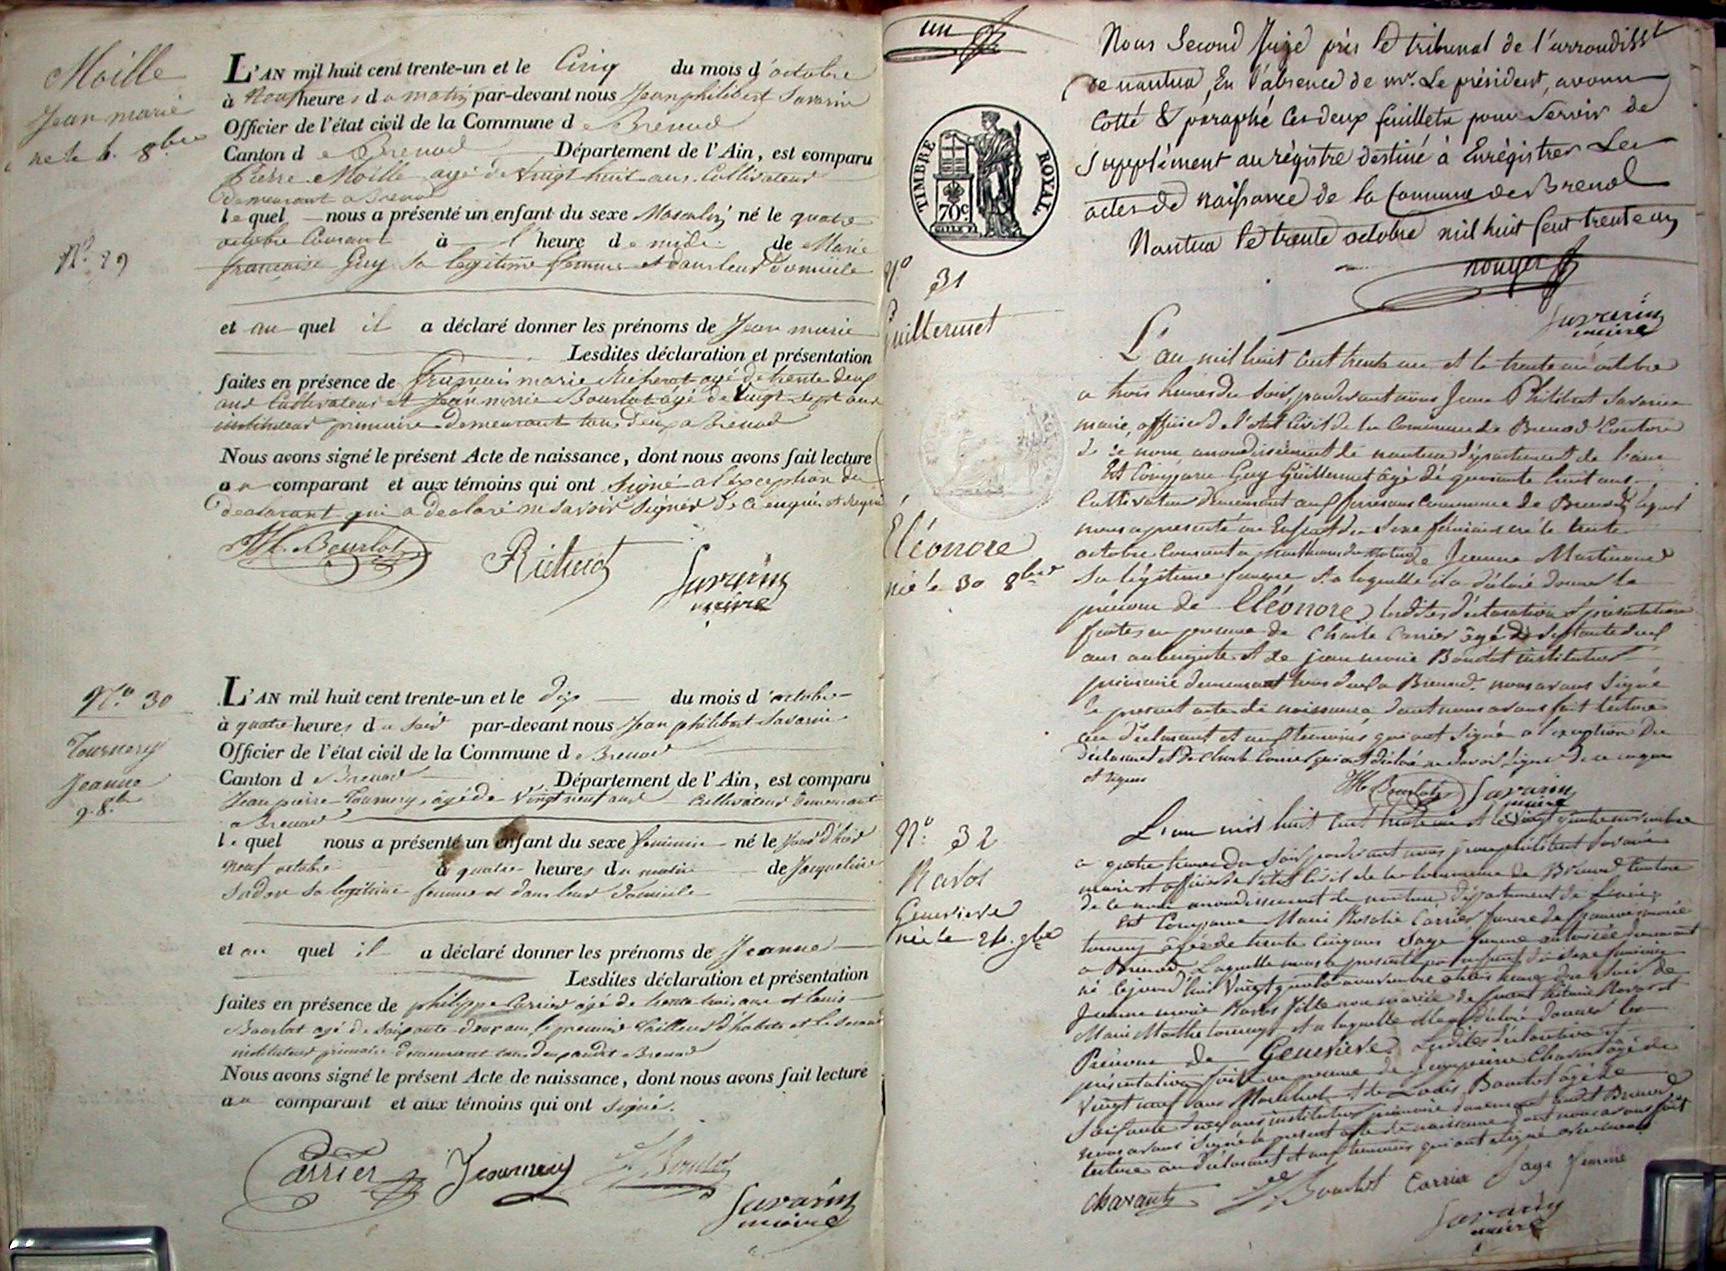 Moille
Jean marie
né le 4. 8bre
N.o 29
L'AN mil huit cent trente-un et le Cinq du mois d'octobre
à Neuf heures du matin par-devant nous Jean philibert Savarin
Officier de l'état civil de la Commune de Brénod
Canton de Brenod Département de l'Ain, est comparu
Pierre Moille agé de vingt huit ans Cultivateur
demeurant a Brenod
lequel nous a présenté un enfant du sexe Masculin né le quatre
octobre Courant à l'heure de midi de Marie
françoise Guy sa legitime femme et dans leur Domicile
et au quel il a déclaré donner les prénoms de Jean marie
Lesdites déclaration et présentation
faites en présence de François marie Richerot agé de trente deux
ans Cultivateur et Jean marie Bourlot agé de vingt sept ans
instituteur primaire demeurant tous deux a Brenod
Nous avons signé le présent Acte de naissance, dont nous avons fait lecture
au comparant et aux témoins qui ont signé a l'exception du
déclarant qui a déclaré ne savoir signer de ce enquis et requis
JM Bourlot
Richerot
Savarin
maire
N.o 30
Tournery
Jeanne
9. 8bre
L'AN mil huit cent trente-un et le dix du mois d'octobre
à quatre heures du soir par-devant nous Jean philibert Savarin
Officier de l'état civil de la Commune de Brenod
Canton de Brenod Département de l'Ain, est comparu
Jean pierre Tournery agé de vingt neuf ans cultivateur demeurant
a Brenod
lequel nous a présenté un enfant du sexe feminin né le jour d'hier
neuf octobre à quatre heures du matin de Jacqueline
Sadou sa legitime femme et dans leur domicile
et au quel il a déclaré donner les prénoms de Jeanne
Lesdites déclaration et présentation
faites en présence de philippe Carrier agé de trente trois ans et louis
Bourlot agé de soixante deux ans, le premier tailleur d'habits et le second
instituteur primaire demeurant tous deux audit Brenod
Nous avons signé le présent Acte de naissance, dont nous avons fait lecture
au comparant et aux témoins qui ont signé.
Carrier Tournery L Bourlot
Savarin
maire
un
Nous Second Juge près le tribunal de l'arrondisst
de nantua, En l'absence de mr. Le président, avons
Cotté & paraphé Ces deux feuillets pour Servir de
Supplément au régistre destiné à Enrégistrer Les
actes de naissance de la Commune de Brenod
Nantua le trente octobre mil huit Cent trente un
TIMBRE ROYAL.
70c
N.o 31
Guillermet
Eléonore
née le 30 8bre
Savarin
maire
L'an mil huit cent trente un et le trente un octobre
a trois heures du soir, pardevant nous Jean Philibert Savarin
maire, officier de l'état civil de la Commune de Brenod Canton
de ce nom arrondissement de nantua département de l'ain
Est Comparu Guy Guillermet âgé de quarante huit ans
Cultivateur demeurant aux commune de Brenod lequel
nous a présenté un Enfant du sexe féminin né le trente
octobre Courant a de Jeanne Martinand
sa légitime femme et a laquelle il a déclaré donner le
prénom de Eléonore, lesdites déclaration et présentation
faites en présence de Charle Carrier âgé de septante deux
ans aubergiste et de jean marie Bourlot instituteur
primaire demeurant tous deux a Brenod. nous avons signé
le présent acte de naissance dont nous avons fait lecture
au déclarant et aux témoins qui ont signé a l'exception du
déclarant et de Charle Carrier qui ont déclaré ne savoir signer de ce enquis
et requis
JM Bourlot Savarin
maire
N.o 32
Ravot
Genevieve
née le 24. 9bre
L'an mil huit cent trente un et le vingt quatre novembre
a quatre heures du soir pardevant nous jean philibert Savarin
maire et officier de l'état civil de la Commune de Brenod Canton
de ce nom arrondissement de nantua, département de l'ain;
est Comparue Marie Rosalie Carrier femme de
Tournery âgée de trente cinq ans Sage femme demeurant
a Brenod, Laquelle nous a présenté un enfant du sexe féminin
né le jour d'hui vingt quatre novembre du soir de
Jeanne marie Ravot fille non mariée de Ravot et
Marie Marthe Tournery et a laquelle elle a déclaré donner les
Prénoms de Genevieve. Lesdites déclaration et
présentation faites en présence de jean pierre Charvant agé de
vingt neuf ans et de Louis Bourlot agé de
soixante deux ans instituteur primaire demeurant audit Brenod
nous avons signé le présent acte de naissance dont nous avons fait
lecture au déclarant et aux témoins qui ont signé
L Bourlot Carrier Sage femme
Savarin
maire